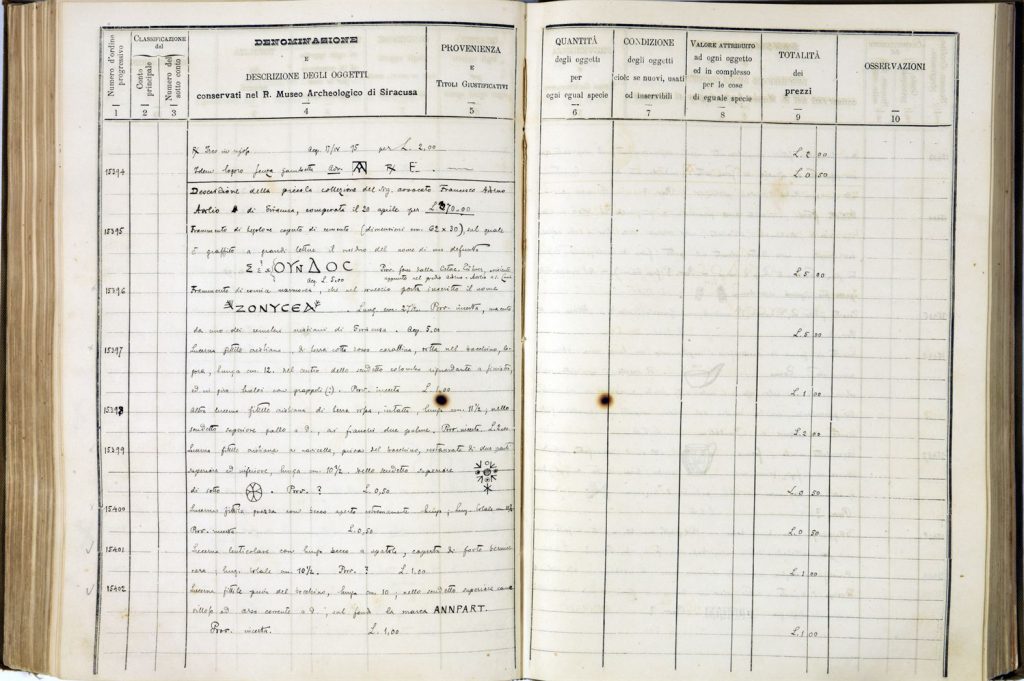 Numero d'ordine progressivo
CLASSIFICAZIONE
del
Conto principale
Numero del sotto conto
DENOMINAZIONE
E
DESCRIZIONE DEGLI OGGETTI
conservati nel R. Museo Archeologico di Siracusa
PROVENIENZA
E
TITOLI GIUSTIFICATIVI
1 2 3 4 5
QUANTITÀ
degli oggetti
per
ogni egual specie
6
CONDIZIONE
degli oggetti
cioè: se nuovi, usati
od inservibili
7
VALORE ATTRIBUITO
ad ogni oggetto
ed in complesso
per le cose
di eguale specie
8
TOTALITÀ
dei
prezzi
9
OSSERVAZIONI
10
per L. 2,00
15394 Idem logoro senza E
Descrizione della piccola collezione del Sig. avvocato Francesco
di Siracusa, comperata il 20 aprile per
15395 Frammento di coperto di cemento (dimensioni cm. 62 x 30), sul quale
è graffito a grandi lettere il nome di un defunto
ΟΥΝΔΟC
Acq. L. 5,00
15396 Frammento di cornice marmorea, che nel porta inscritto il nome
ZONYCEA . Lung. cm. Prov. incerta,
da uno dei cimiteri cristiani di Siracusa. Acq. 5.00
15397 Lucerna fittile cristiana, di terra cotta rosso corallina, rotta nel becchino,
lunga cm. 12. nel centro dello scudetto colomba riguardante a sinistra,
ed in giro con grappoli (?). Prov. incerta L. 1,00
15398 Altra lucerna fittile cristiana di terra rossa, intatta, lunga cm. 11 1/2, nello
scudetto superiore gallo a d., ai fianchi due palme. Prov. incerta. L. 2,00
15399 Lucerna fittile cristiana a navicella, priva del becchino, restaurata di due parti
superiore ed inferiore, lunga cm. 10 1/2. Nello scudetto superiore
di sotto . Prov. ? L. 0,50
15400 Lucerna fittile con becco aperto
Prov. incerta L. 0,50
15401 Lucerna lenticolare con lungo becco a spatola, coperta di forte vernice
nera, lung. totale cm. 10 1/2. Prov. ? L. 1,00
15402 Lucerna fittile priva del becchino, lunga cm. 10, nello scudetto superiore
ed corrente a d., sul fondo la marca ANNPART.
Prov. incerta. L. 1,00
L. 2 00
L. 0 50
L. 5 00
L. 5 00
L. 1 00
L. 2 00
L. 0 50
L. 0 50
L. 1 00
L. 1 00